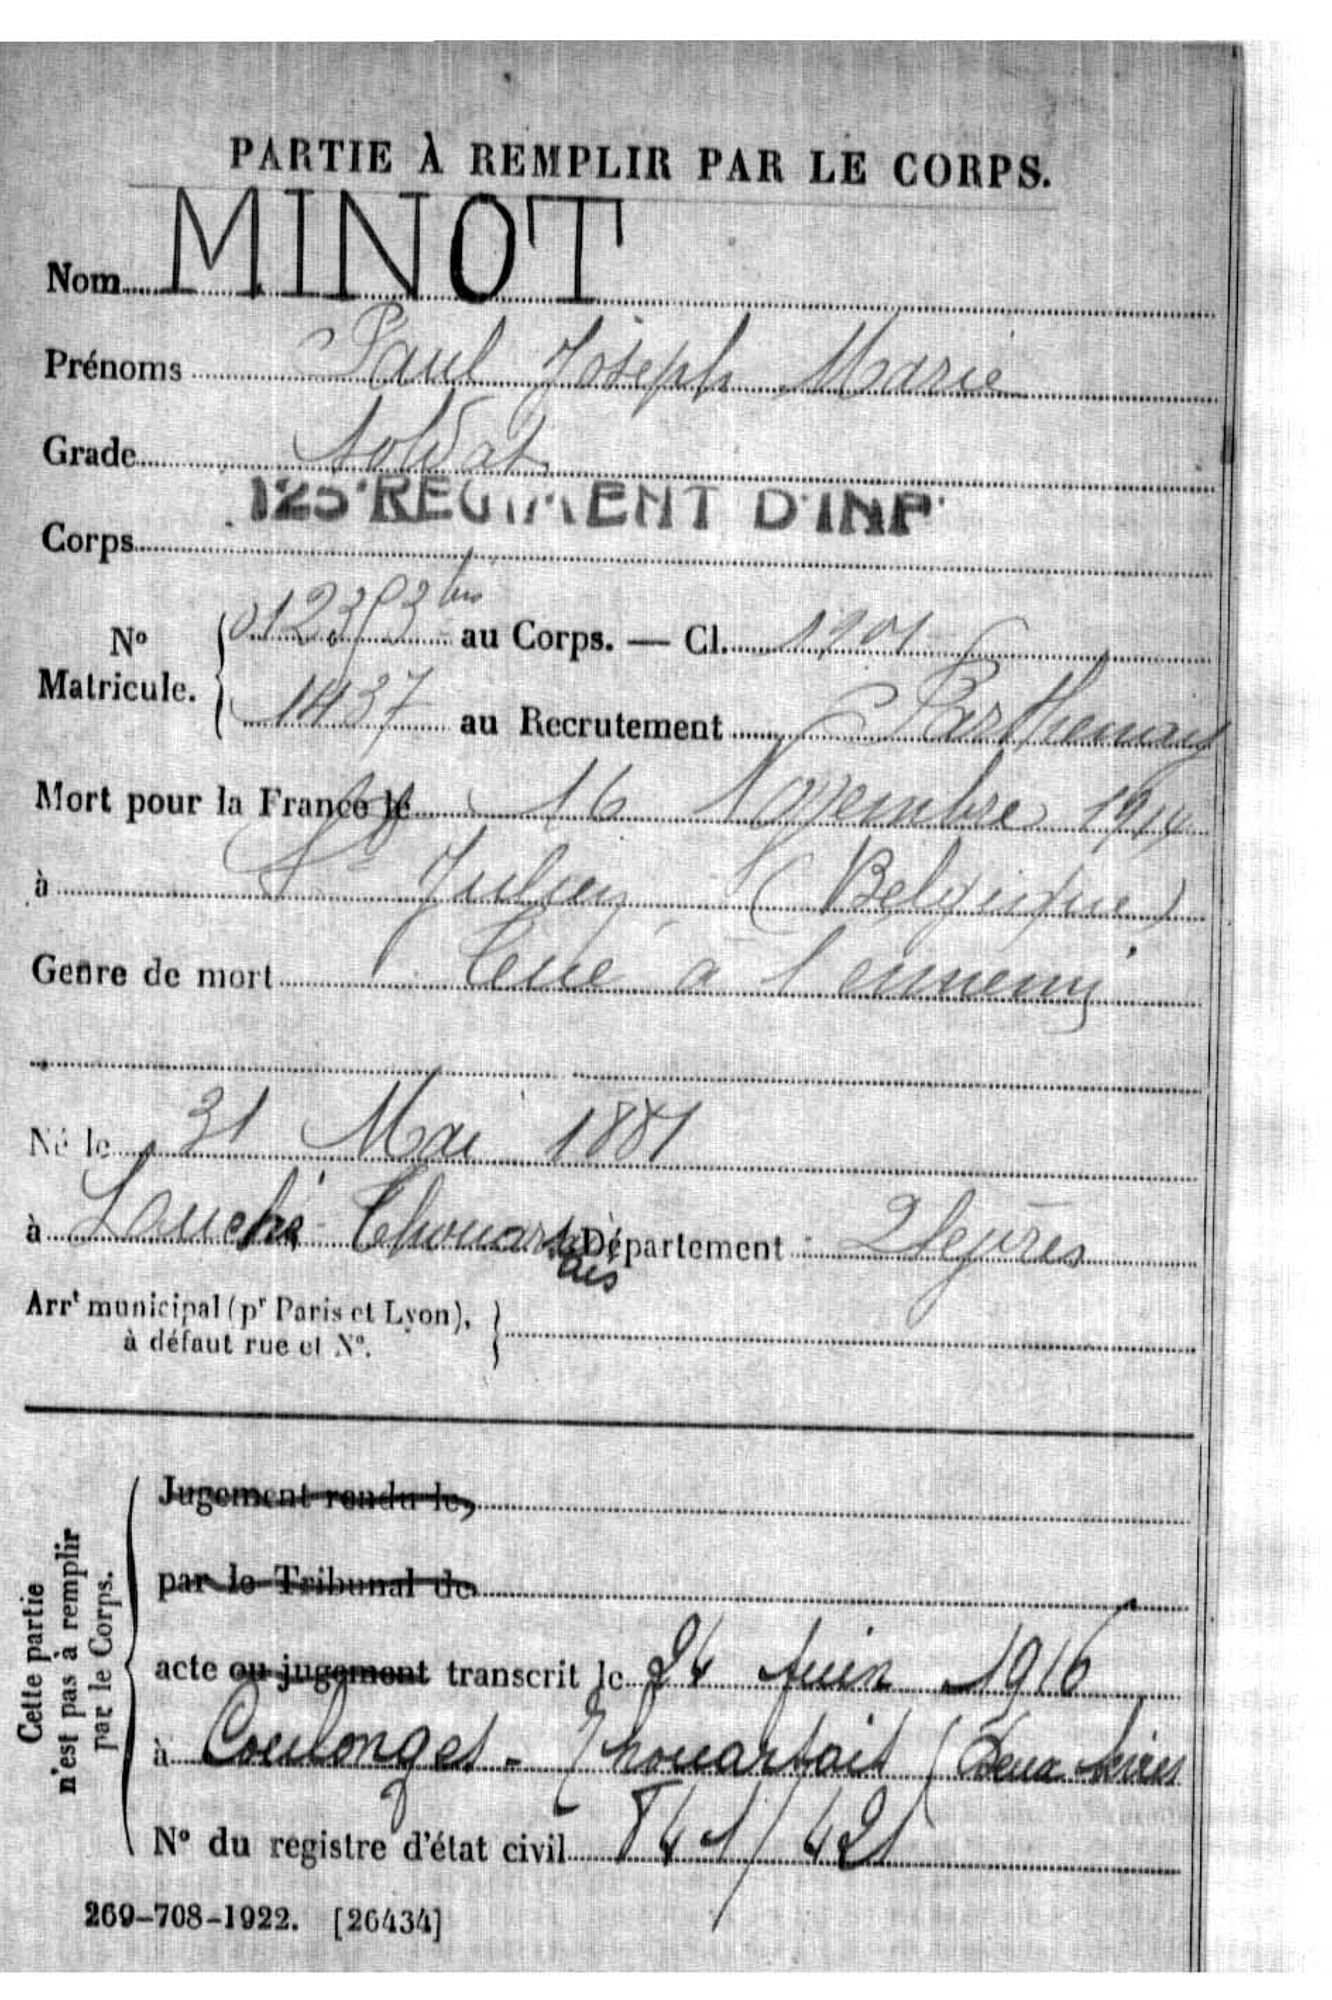 PARTIE À REMPLIR PAR LE CORPS.
Nom MINOT
Prénoms Paul Joseph Marie
Grade Soldat
Corps 125e REGIMENT D'INF
No Matricule. 012393 bis au Corps. — Cl. 1901
1437 au Recrutement Parthenay
Mort pour la France le 16 Novembre 1914
à St Julien (Belgique)
Genre de mort Tué à l'ennemi
Né le 31 Mai 1881
à Louché-Thouarsais Département 2 Sèvres
Arrt municipal (pr Paris et Lyon),
à défaut rue et No.
Cette partie
n'est pas à remplir
par le Corps.
Jugement rendu le,
par le Tribunal de
acte ou jugement transcrit le 24 Juin 1916
à Coulonges-Thouarsais (Deux Sèvres
No du registre d'état civil 841/421
269-708-1922. [26434]